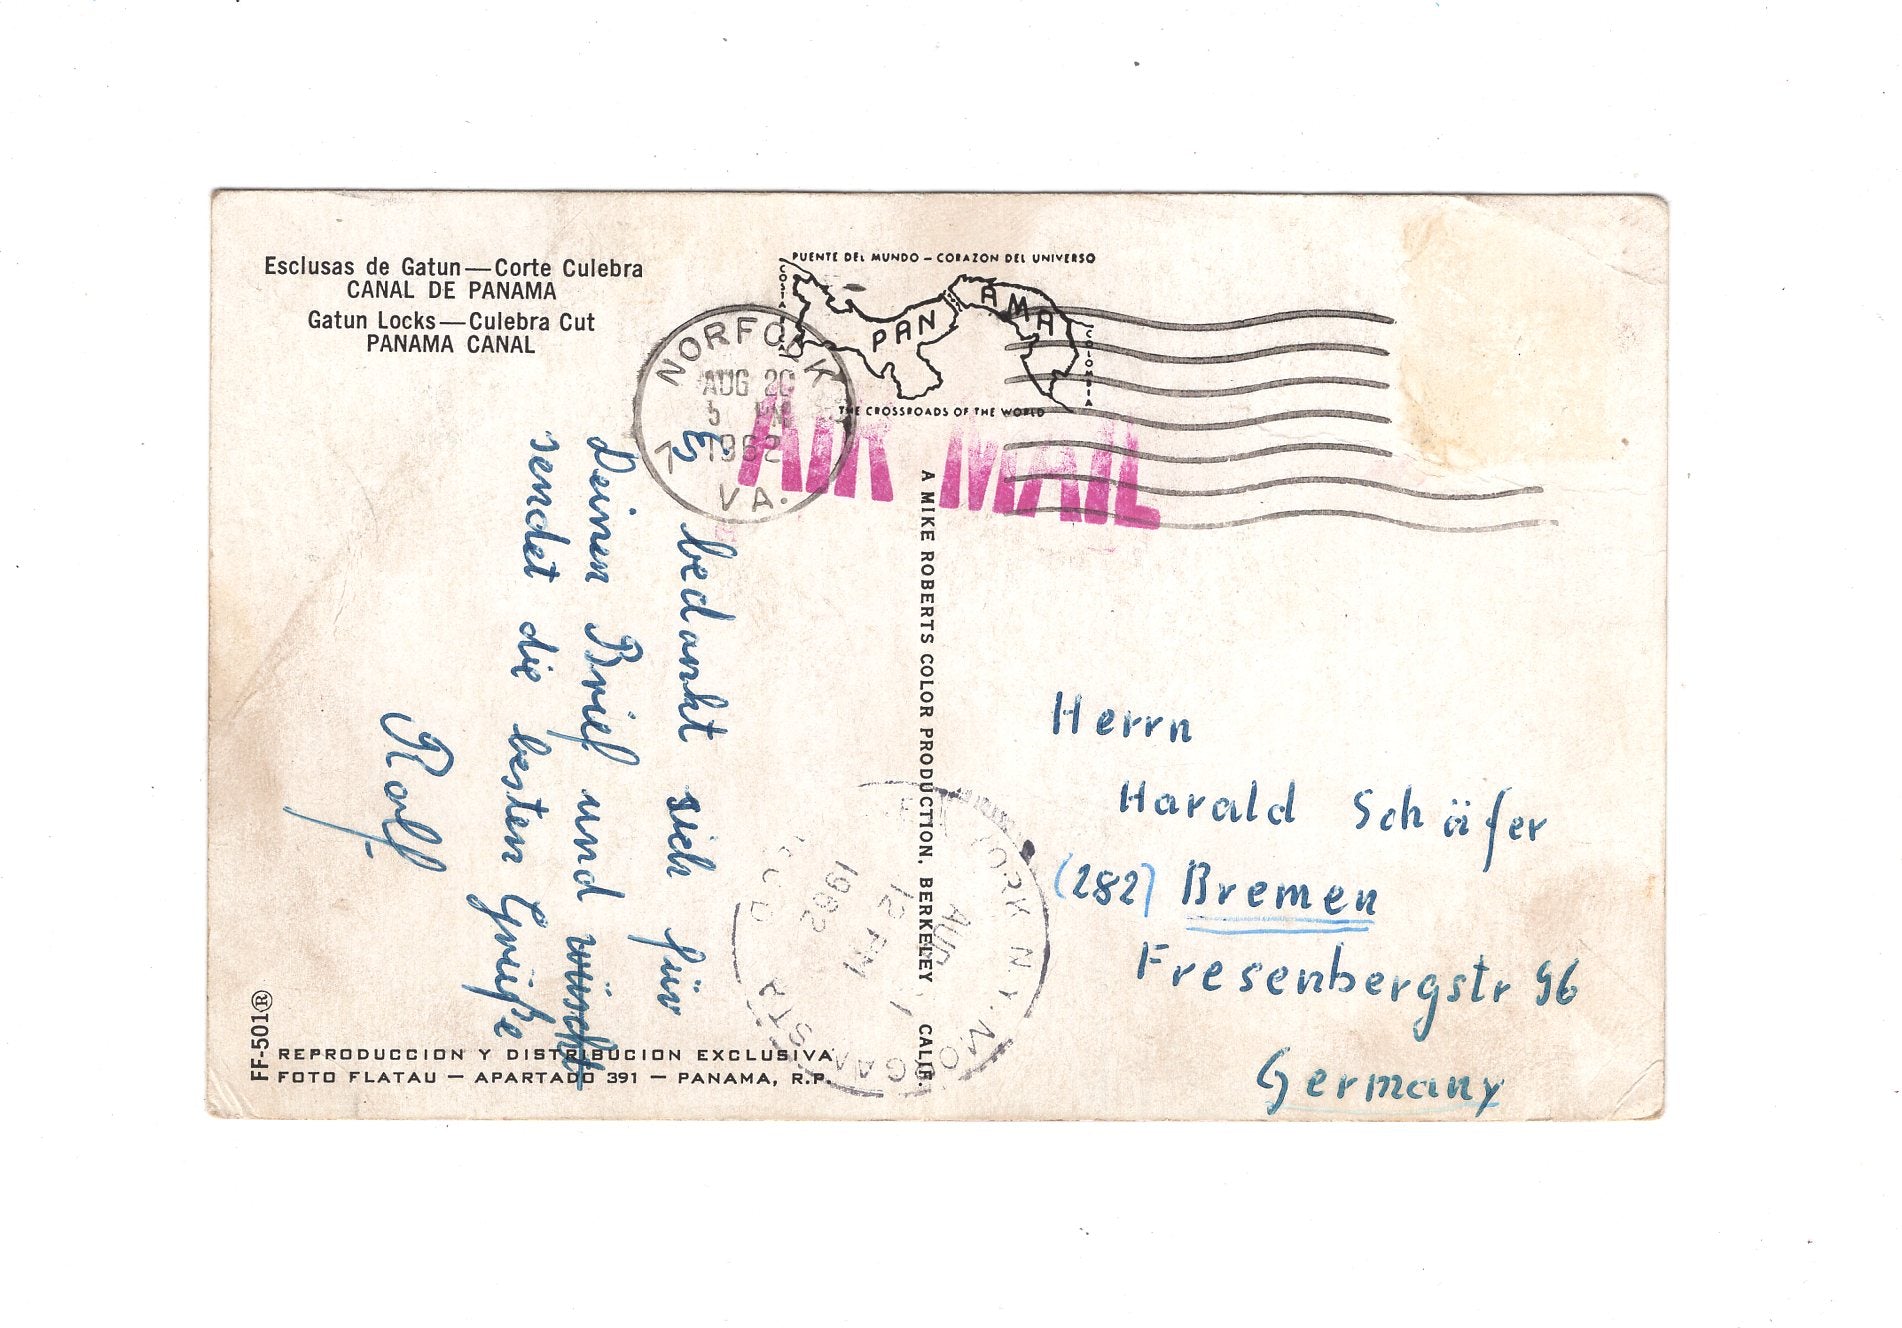 Esclusas de Gatun—Corte Culebra
CANAL DE PANAMA
Gatun Locks—Culebra Cut
PANAMA CANAL
PUENTE DEL MUNDO – CORAZON DEL UNIVERSO
COSTA RICA
PANAMA
COLOMBIA
THE CROSSROADS OF THE WORLD
NORFOLK
AUG 20
5 PM
1962
VA.
AIR MAIL
Es bedankt sich für
Deinen Brief und wüscht
sendet die besten Grüße
Rolf.
A MIKE ROBERTS COLOR PRODUCTION, BERKELEY CALIF.
YORK N.Y. MORGAN STA
AUG
12 PM
1962
Herrn
Harald Schäfer
(282) Bremen
Fresenbergstr 96
Germany
FF-501®
REPRODUCCION Y DISTRIBUCION EXCLUSIVA
FOTO FLATAU — APARTADO 391 — PANAMA, R.P.